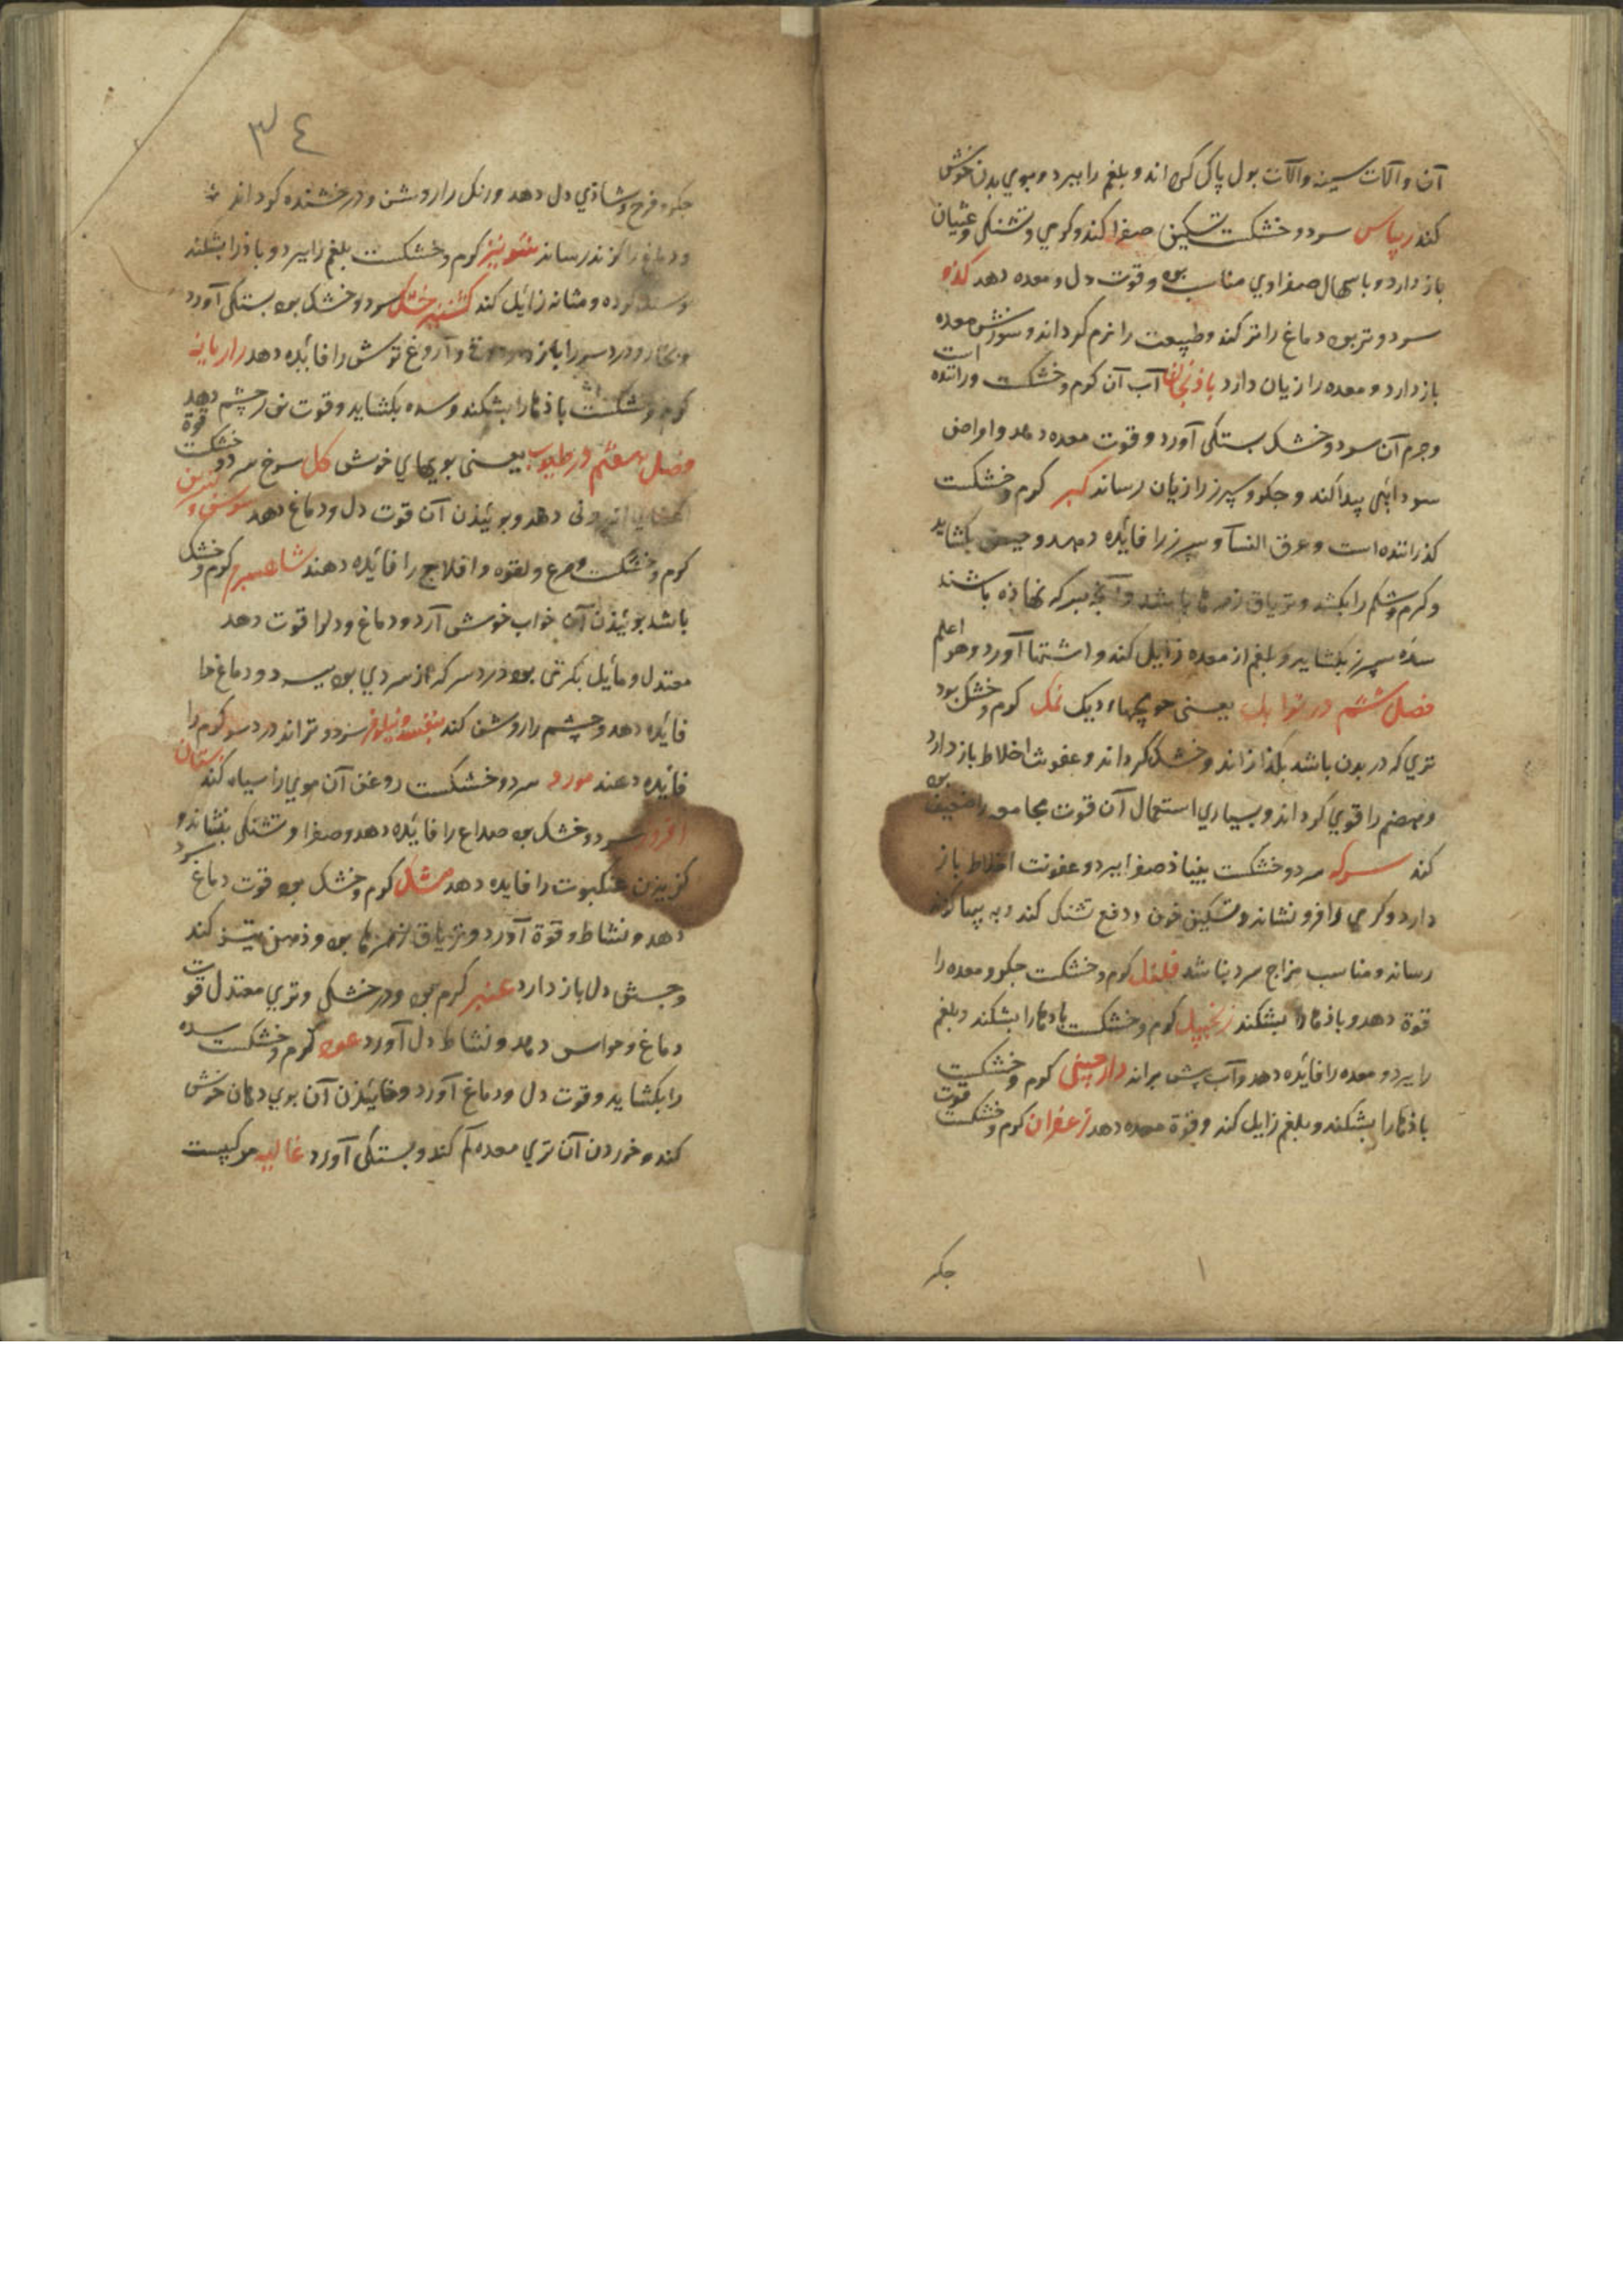 آن و آلات سینه و آلات بول پاک گرداند و بلغم را ببرد و بوی بدن خوش
کند ریباس سرد و خشکست تسکین صفرا کند و کرمی و تشنکی و غثیان
باز دارد و با سهال صفراوی مناسب بود و قوت دل و معده دهد کدو
سرد و تر بود دماغ را تر کند و طبیعت را نرم کرداند و سوزش معده
باز دارد و معده را زیان دارد باذنجان آب آن کرم و خشکست و راننده است
و جرم آن سرد و خشک بستکی آورد و قوت معده دهد و امراض
سودایی پیدا کند و جکر و سپرز را زیان رساند کبر کرم و خشکست
کذراننده است و عرق النسآ و سپرز را فائده دهد و حیض بکشاید
و کرم شکم را بکشد و تریاق زهرها باشد و آنچه بسرکه نهاذه باشند
سده سپرز بکشاید و بلغم از معده زایل کند و اشتها آورد و هو اعلم
فصل ششم در توابل یعنی حویجهاء دیک نمک کرم و خشک بود
تری که در بدن باشد بکذازاند و خشک کرداند و عفونت اخلاط باز دارد
و هضم را قوی کرداند و بسیاری استعمال آن قوت مجامعه را ضعیف
کند سرکه سرد و خشکست بنیاذ صفرا ببرد و عفونت اخلاط باز
دارد و کرمی را فرو نشاند و تسکین خون و دفع تشنکی کند و به پیها کزند
رساند و مناسب مزاج سرد نباشد فلفل کرم و خشکست جکر و معده را
قوة دهد و باذها را بشکند زنجبیل کرم و خشکست بادها را بشکند و بلغم
را ببرد و معده را فائده دهد و آب پشت براند دارچینی کرم و خشکست
باذها را بشکند و بلغم زایل کند و قوة معده دهد زعفران کرم و خشکست قوت
جکر
٣٤
جکر و فرح و شاذی دل دهد و رنک را روشن و درخشنده کرداند
و دماغ را کزند رساند شونیز کرم و خشکست بلغم را ببرد و باذ را بشکند
و سنک کرده و مثانه زائل کند کشنیز خشک سرد و خشک بود بستکی آورد
و بخار و درد سر را باز دارد و آروغ ترش را فائده دهد رازیانه
کرم و خشکست باذها را بشکند و سده بکشاید و قوت نور چشم دهد
فصل هفتم در طیوب یعنی بویهای خوش کل سرخ سرد و خشکست قوة
اعضای اندرونی دهد و بوئیذن آن قوت دل و دماغ دهد سوسن و نسرین
کرم و خشکست صرع و لقوه و افلاج را فائده دهند شاهسپرم کرم و خشک
باشد بوئیذن آن خواب خوش آرد و دماغ و دل را قوت دهد
معتدل و مائل بکرمی بود درد سر که از سردی بود ببرد و دماغ را
فائده دهد و چشم را روشن کند بنفشه و نیلوفر سرد و تراند درد سر کرم را
فائده دهند مورد سرد و خشکست روغن آن موی را سیاه کند بستان
افروز سرد و خشک بود صداع را فائده دهد و صفرا و تشنکی بنشاند و
کزیذن عنکبوت را فایده دهد مشک کرم و خشک بود قوت دماغ
دهد و نشاط و قوة آورد و تریاق زهرها بود و ذهن تیز کند
و جستن دل باز دارد عنبر کرم بود و در خشکی و تری معتدل قوت
دماغ و حواس دهد و نشاط دل آورد عود کرم و خشکست سده
را بکشاید و قوت دل و دماغ آورد و خائیذن آن بوی دهان خوش
کند و خوردن آن تری معده کم کند و بستکی آورد غالیه مرکبست